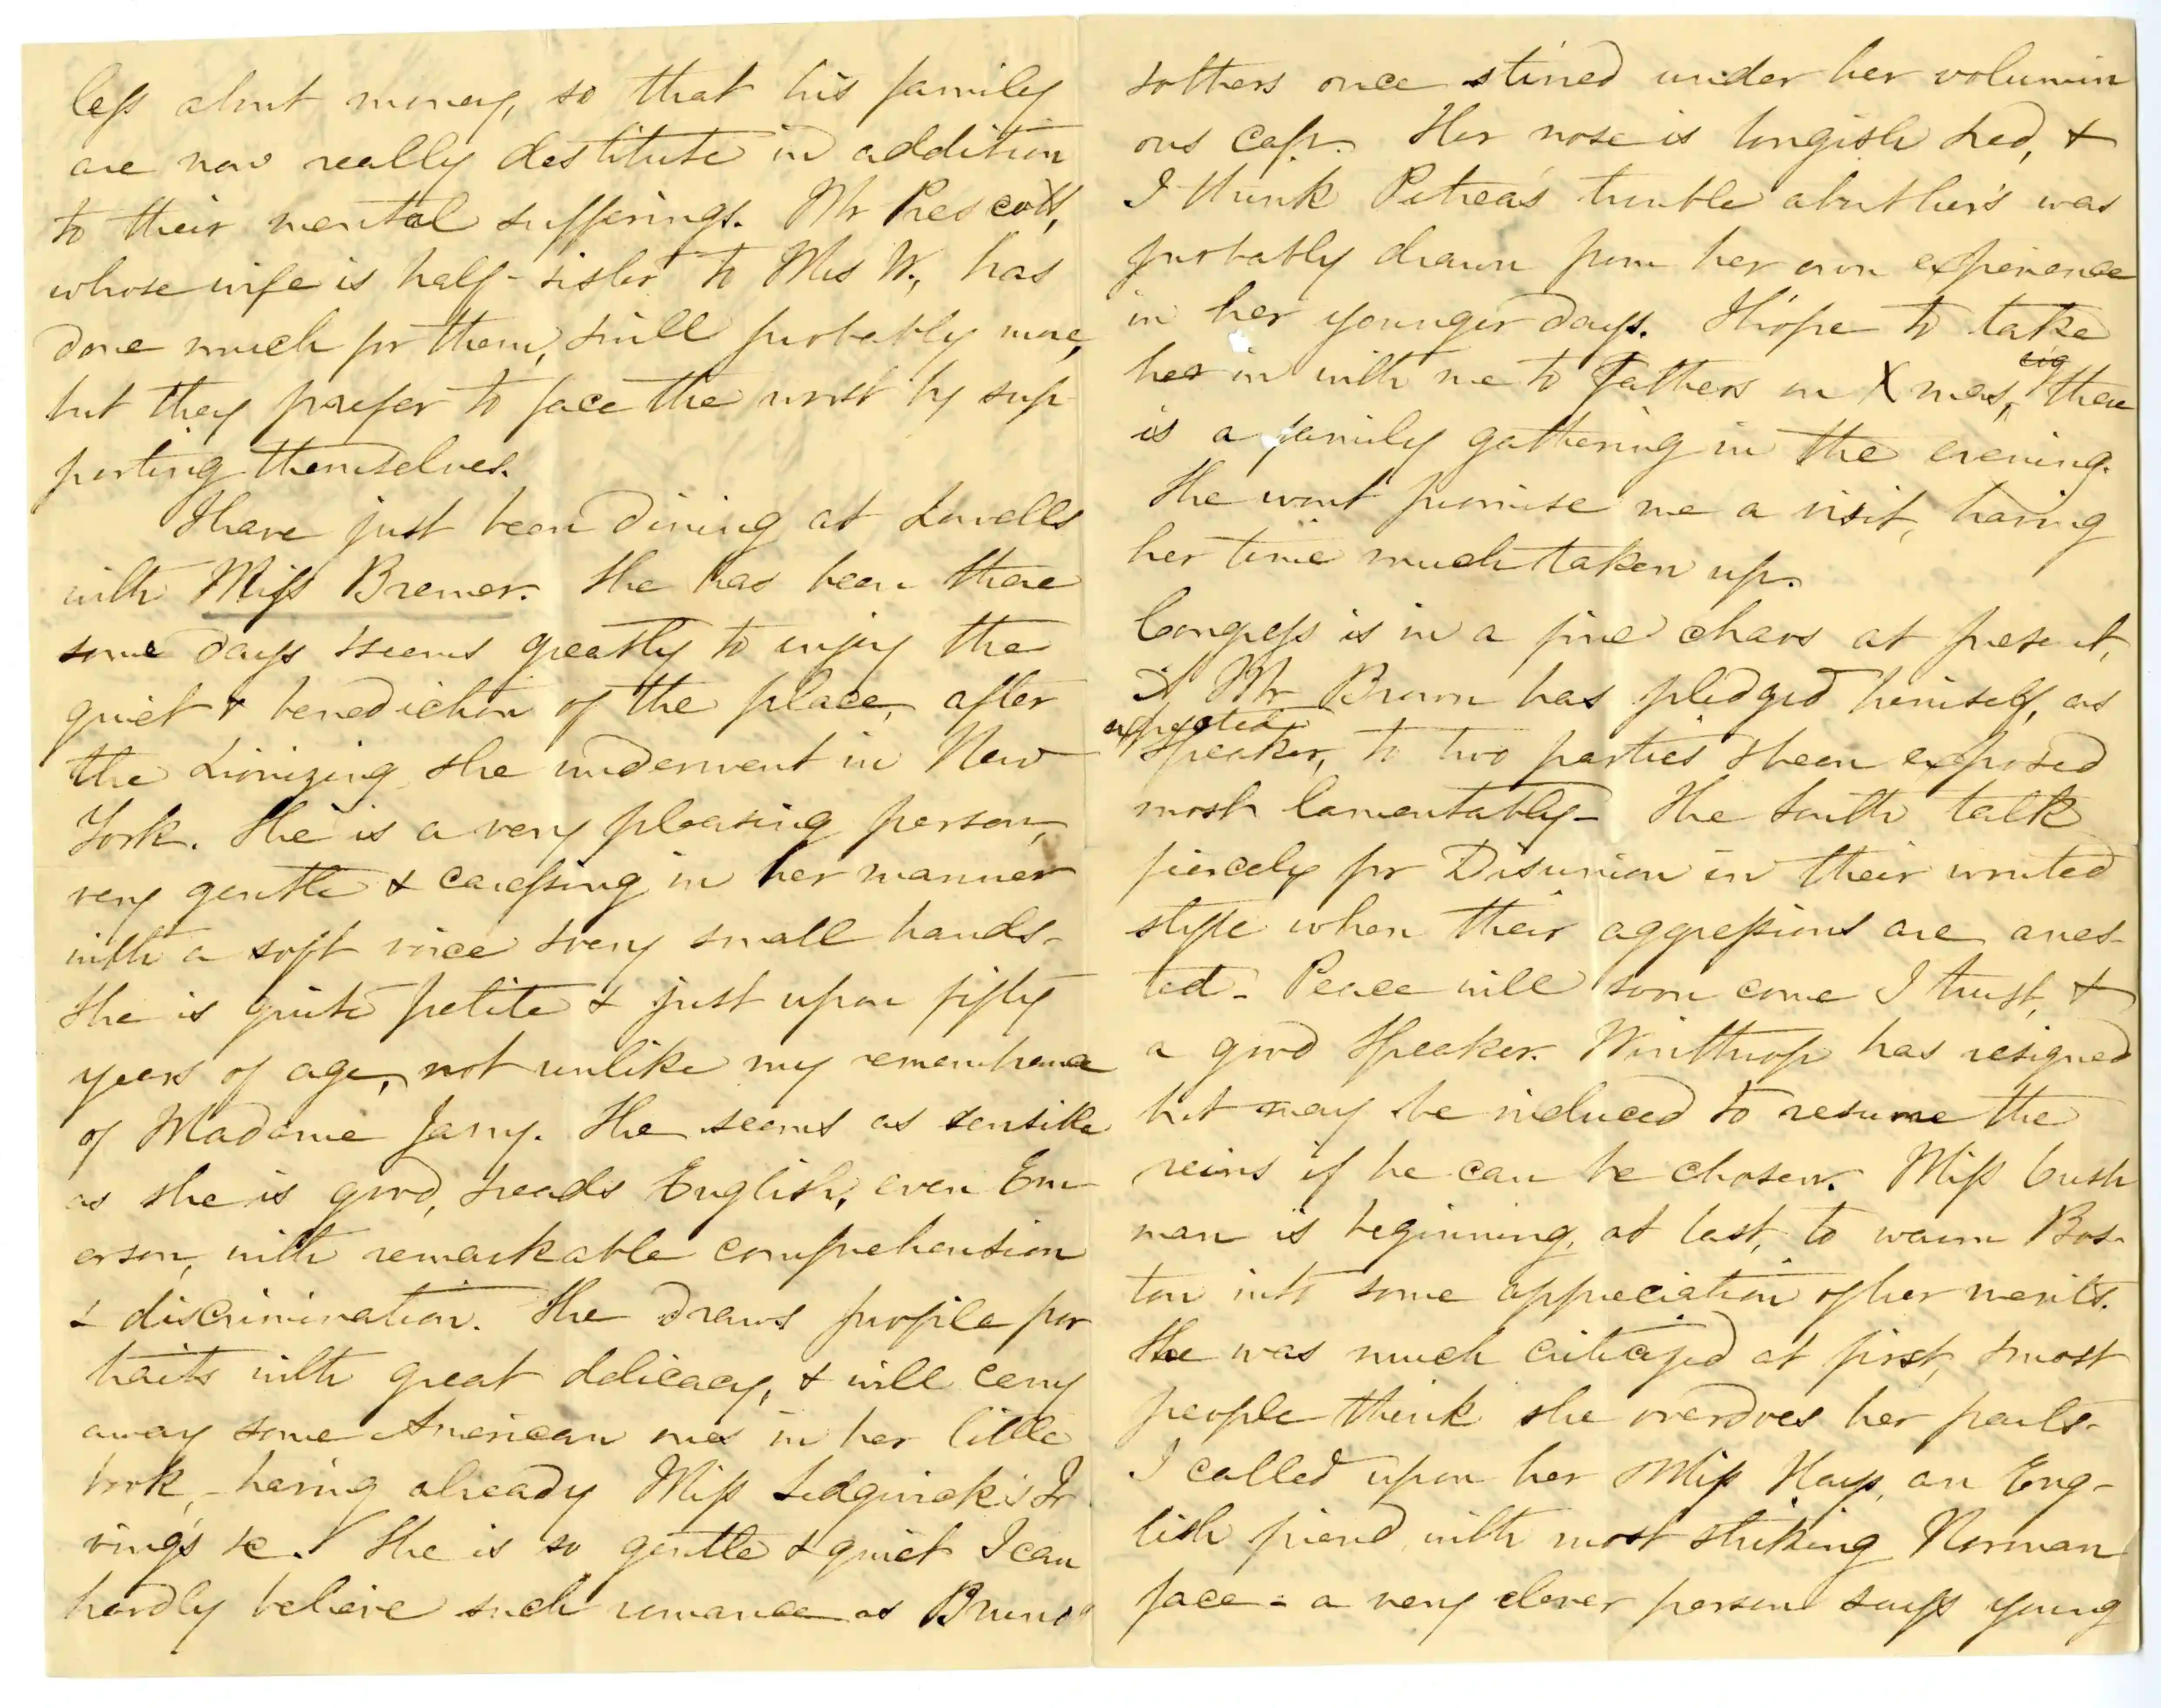 less about money, so that his family
are now really destitute in addition
to their mental sufferings. Mr Prescott,
whose wife is half-sister to Mrs W., has
done much for them, & will probably more,
but they prefer to face the worst by sup
porting themselves.
I have just been dining at Lowells
with Miss Bremer. She has been there
some days & seems greatly to enjoy the
quiet & benediction of the place, after
the Lionizing she underwent in New
York. She is a very pleasing person,
very gentle & caressing in her manner
with a soft voice & very small hands-
She is quite petite & just upon fifty
years of age, not unlike my remembrance
of Madame Jany. She seems as sensible
as she is good, & reads English, even Em
erson, with remarkable comprehension
& discrimination. She draws profile por
traits with great delicacy, & will carry
away some American ones in her little
book, - having already Miss Sedgwick's Ir
ving's &c. She is so gentle & quiet I can
hardly believe such romance as Bruno
& others once stirred under her volumin
ous cap. Her nose is longish & red, &
I think Petrea's trouble about her's was
probably drawn from her own experience
in her younger days. I hope to take
her in with me to Father's on Xmas, there
is a family gathering in the evening.
She wont promise me a visit, having
her time much taken up.
Congress is in a fine chaos at present,
Mr Brown has pledged himself, as
expected
Speaker, to two parties & been exposed
most lamentably - The South talk
fiercely for Disunion in their wonted
style when their aggressions are arres-
ted - Peace will soon come I trust, &
a good Speaker. Winthrop has resigned
but may be induced to resume the
reins if he can be chosen. Miss Cush
man is beginning, at last, to warm Bos-
ton into some appreciation of her merits.
She was much criticized at first, & most
people think she overdoes her parts-
I called upon her & Miss Hays, an Eng-
lish friend with most striking Norman
face - a very clever person says young